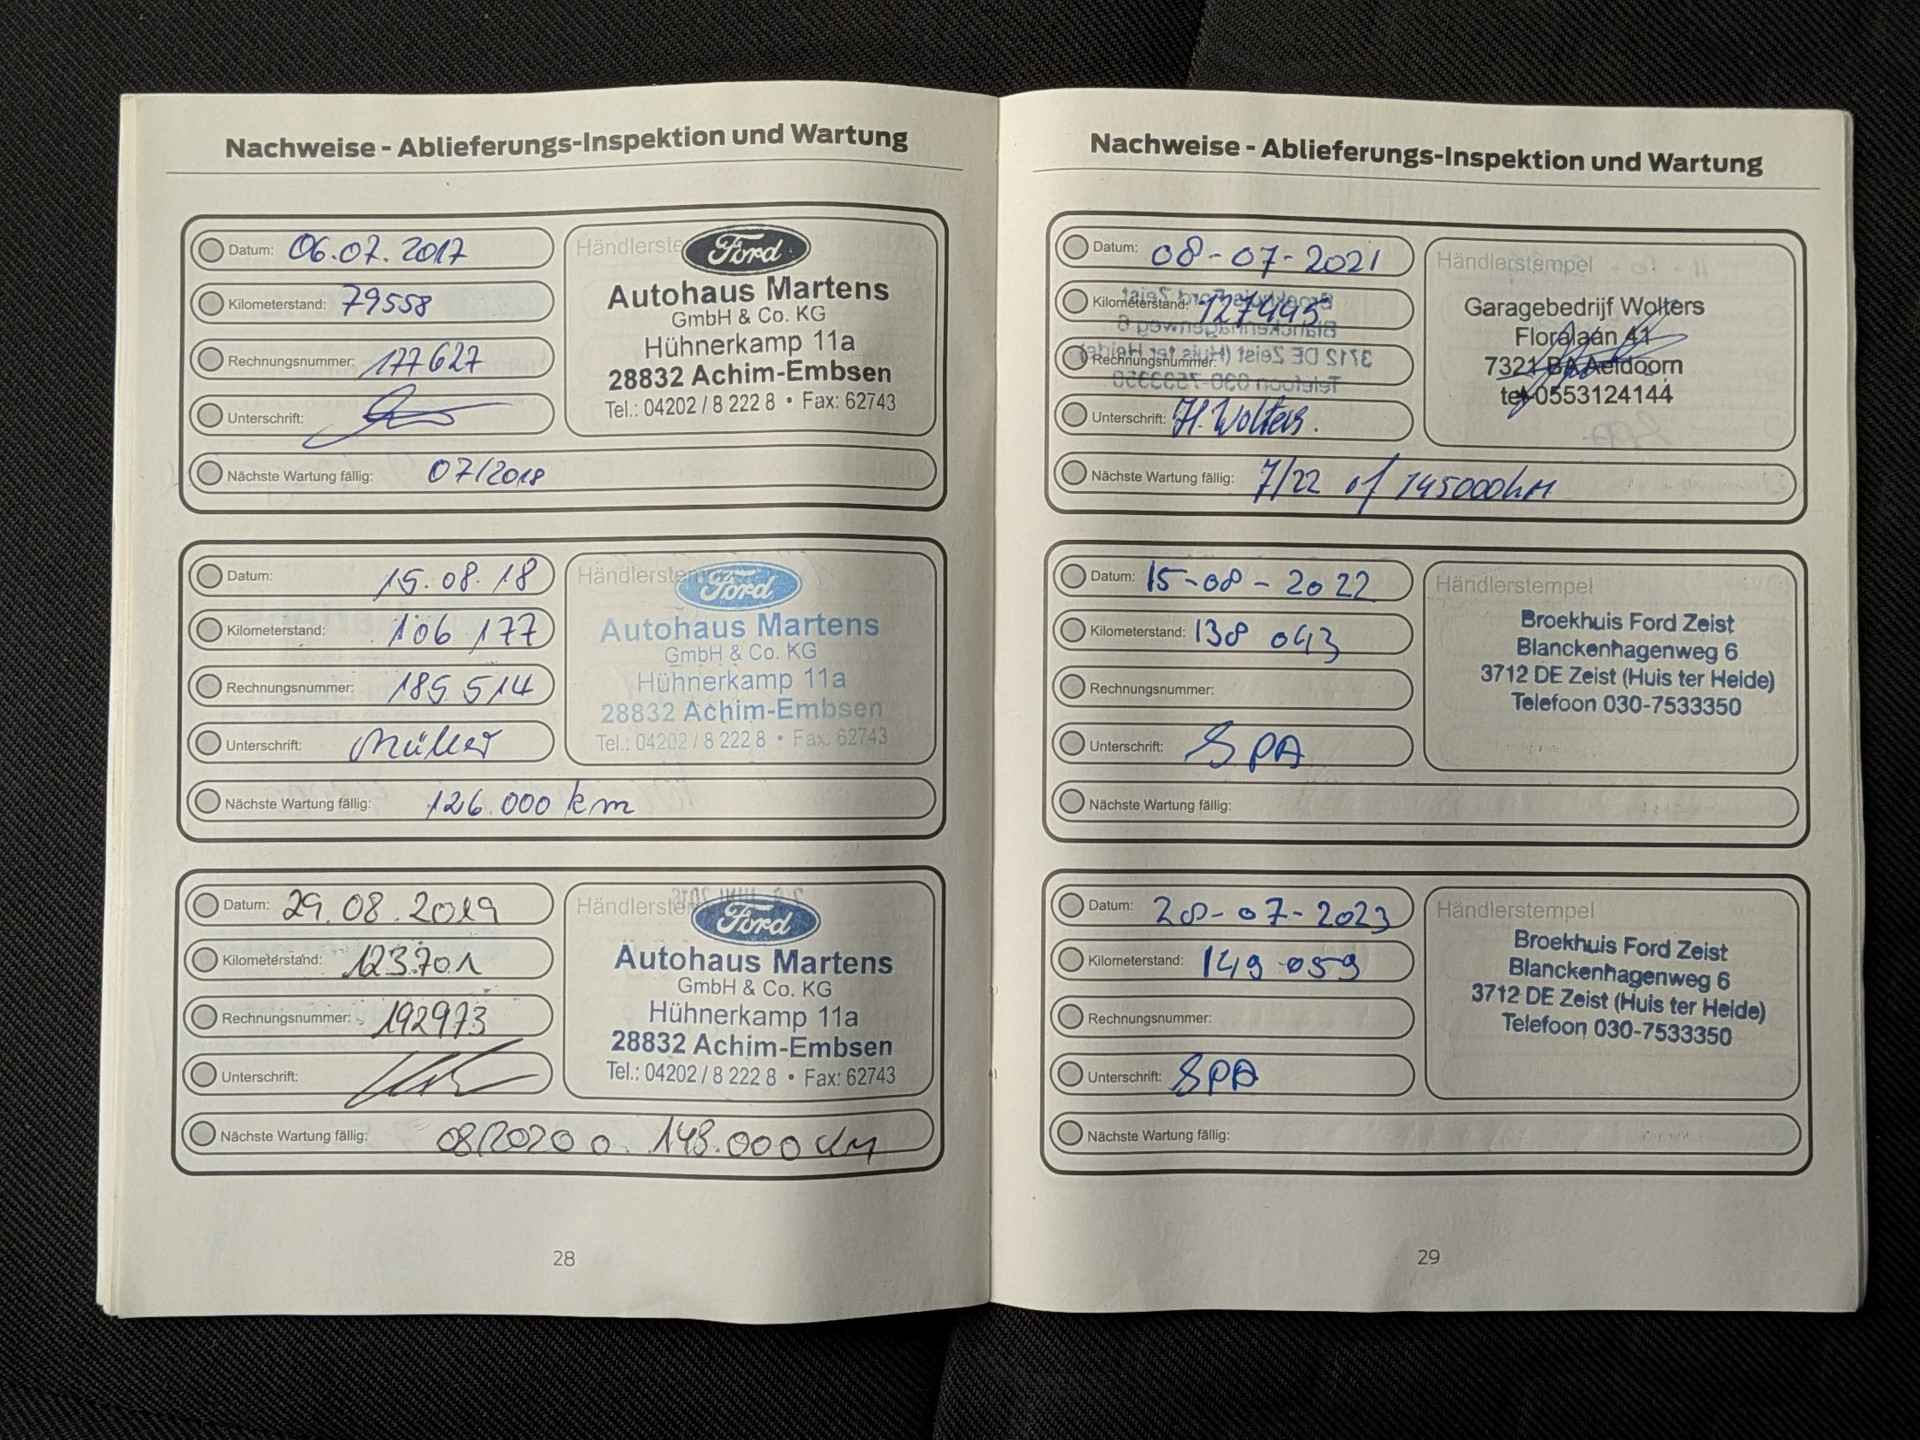 Nachweise - Ablieferungs-Inspektion und Wartung
Datum: 06.07.2017
Kilometerstand: 79558
Rechnungsnummer: 177627
Unterschrift:
Nächste Wartung fällig: 07/2018
Händlerste
Ford
Autohaus Martens
GmbH & Co. KG
Hühnerkamp 11a
28832 Achim-Embsen
Tel.: 04202 / 8 222 8 • Fax: 62743
Datum: 15.08.18
Kilometerstand: 106 177
Rechnungsnummer: 185 514
Unterschrift: Müller
Nächste Wartung fällig: 126.000 km
Händlerstem
Ford
Autohaus Martens
GmbH & Co. KG
Hühnerkamp 11a
28832 Achim-Embsen
Tel.: 04202 / 8 222 8 • Fax: 62743
Datum: 29.08.2019
Kilometerstand: 123.701
Rechnungsnummer: 192973
Unterschrift:
Nächste Wartung fällig: 08/2020 o. 148.000 km
Händlerste
Ford
Autohaus Martens
GmbH & Co. KG
Hühnerkamp 11a
28832 Achim-Embsen
Tel.: 04202 / 8 222 8 • Fax: 62743
28
Nachweise - Ablieferungs-Inspektion und Wartung
Datum: 08-07-2021
Kilometerstand: 127445
Rechnungsnummer:
Unterschrift: H. Wolters.
Nächste Wartung fällig: 7/22 of 145000km
Händlerstempel
Garagebedrijf Wolters
Floralaan 41
7321 BA Aeldoorn
tel 0553124144
Datum: 15-08-2022
Kilometerstand: 138 043
Rechnungsnummer:
Unterschrift: SPA
Nächste Wartung fällig:
Händlerstempel
Broekhuis Ford Zeist
Blanckenhagenweg 6
3712 DE Zeist (Huis ter Heide)
Telefoon 030-7533350
Datum: 28-07-2023
Kilometerstand: 149 059
Rechnungsnummer:
Unterschrift: SPA
Nächste Wartung fällig:
Händlerstempel
Broekhuis Ford Zeist
Blanckenhagenweg 6
3712 DE Zeist (Huis ter Heide)
Telefoon 030-7533350
29